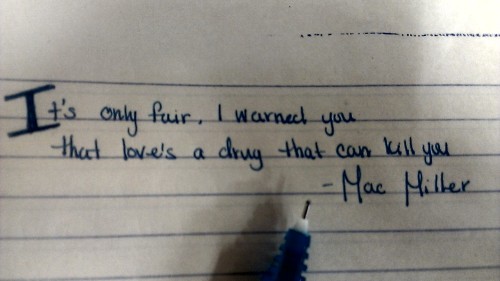 It's only fair, I warned you
that love's a drug that can kill you
- Mac Miller